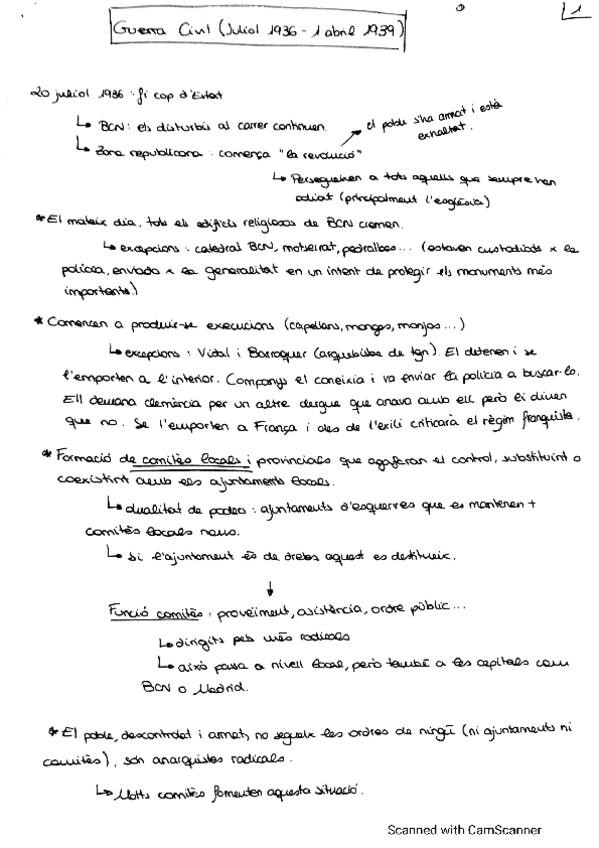 1
Guerra Civil (Juliol 1936 - 1 abril 1939)
20 juliol 1936 : fi cop d'Estat
↳ BCN: els disturbis al carrer continuen.
el poble s'ha armat i està
exhaltat.
↳ Zona republicana : comença "la revolució"
↳ Persegueixen a tots aquells que sempre han
odiat (principalment l'església)
* El mateix dia, tots els edificis religiosos de BCN cremen.
↳ excepcions : catedral BCN, motserrat, pedralbes... (estaven custodiats x la
policia, enviada x la generalitat en un intent de protegir els monuments més
importants.)
* Comencen a produir-se execucions (capellans, monges, monjos...)
↳ excepcions : Vidal i Barraquer (arquebisbe de tgn). El detenen i se
l'emporten a l'interior. Companys el coneixia i va enviar la policia a buscar-lo.
Ell demana clemència per un altre clergue que anava amb ell però ei diuen
que no. Se l'emporten a França i des de l'exili criticarà el règim franquista.
* Formació de comitès locals i provincials que agafaran el control, substituint o
coexistint amb els ajuntaments locals.
↳ dualitat de poders : ajuntaments d'esquerres que es mantenen +
comitès locals nous.
↳ si l'ajuntament és de dretes aquest es destitueix.
↓
Funció comitès : proveïment, asistència, ordre públic...
↳ dirigits pels més radicals
↳ això passa a nivell local, però també a les capitals com
BCN o Madrid.
* El poble, descontrolat i armat, no segueix les ordres de ningú (ni ajuntaments ni
comitès), són anarquistes radicals.
↳ Molts comitès fomenten aquesta situació.
Scanned with CamScanner